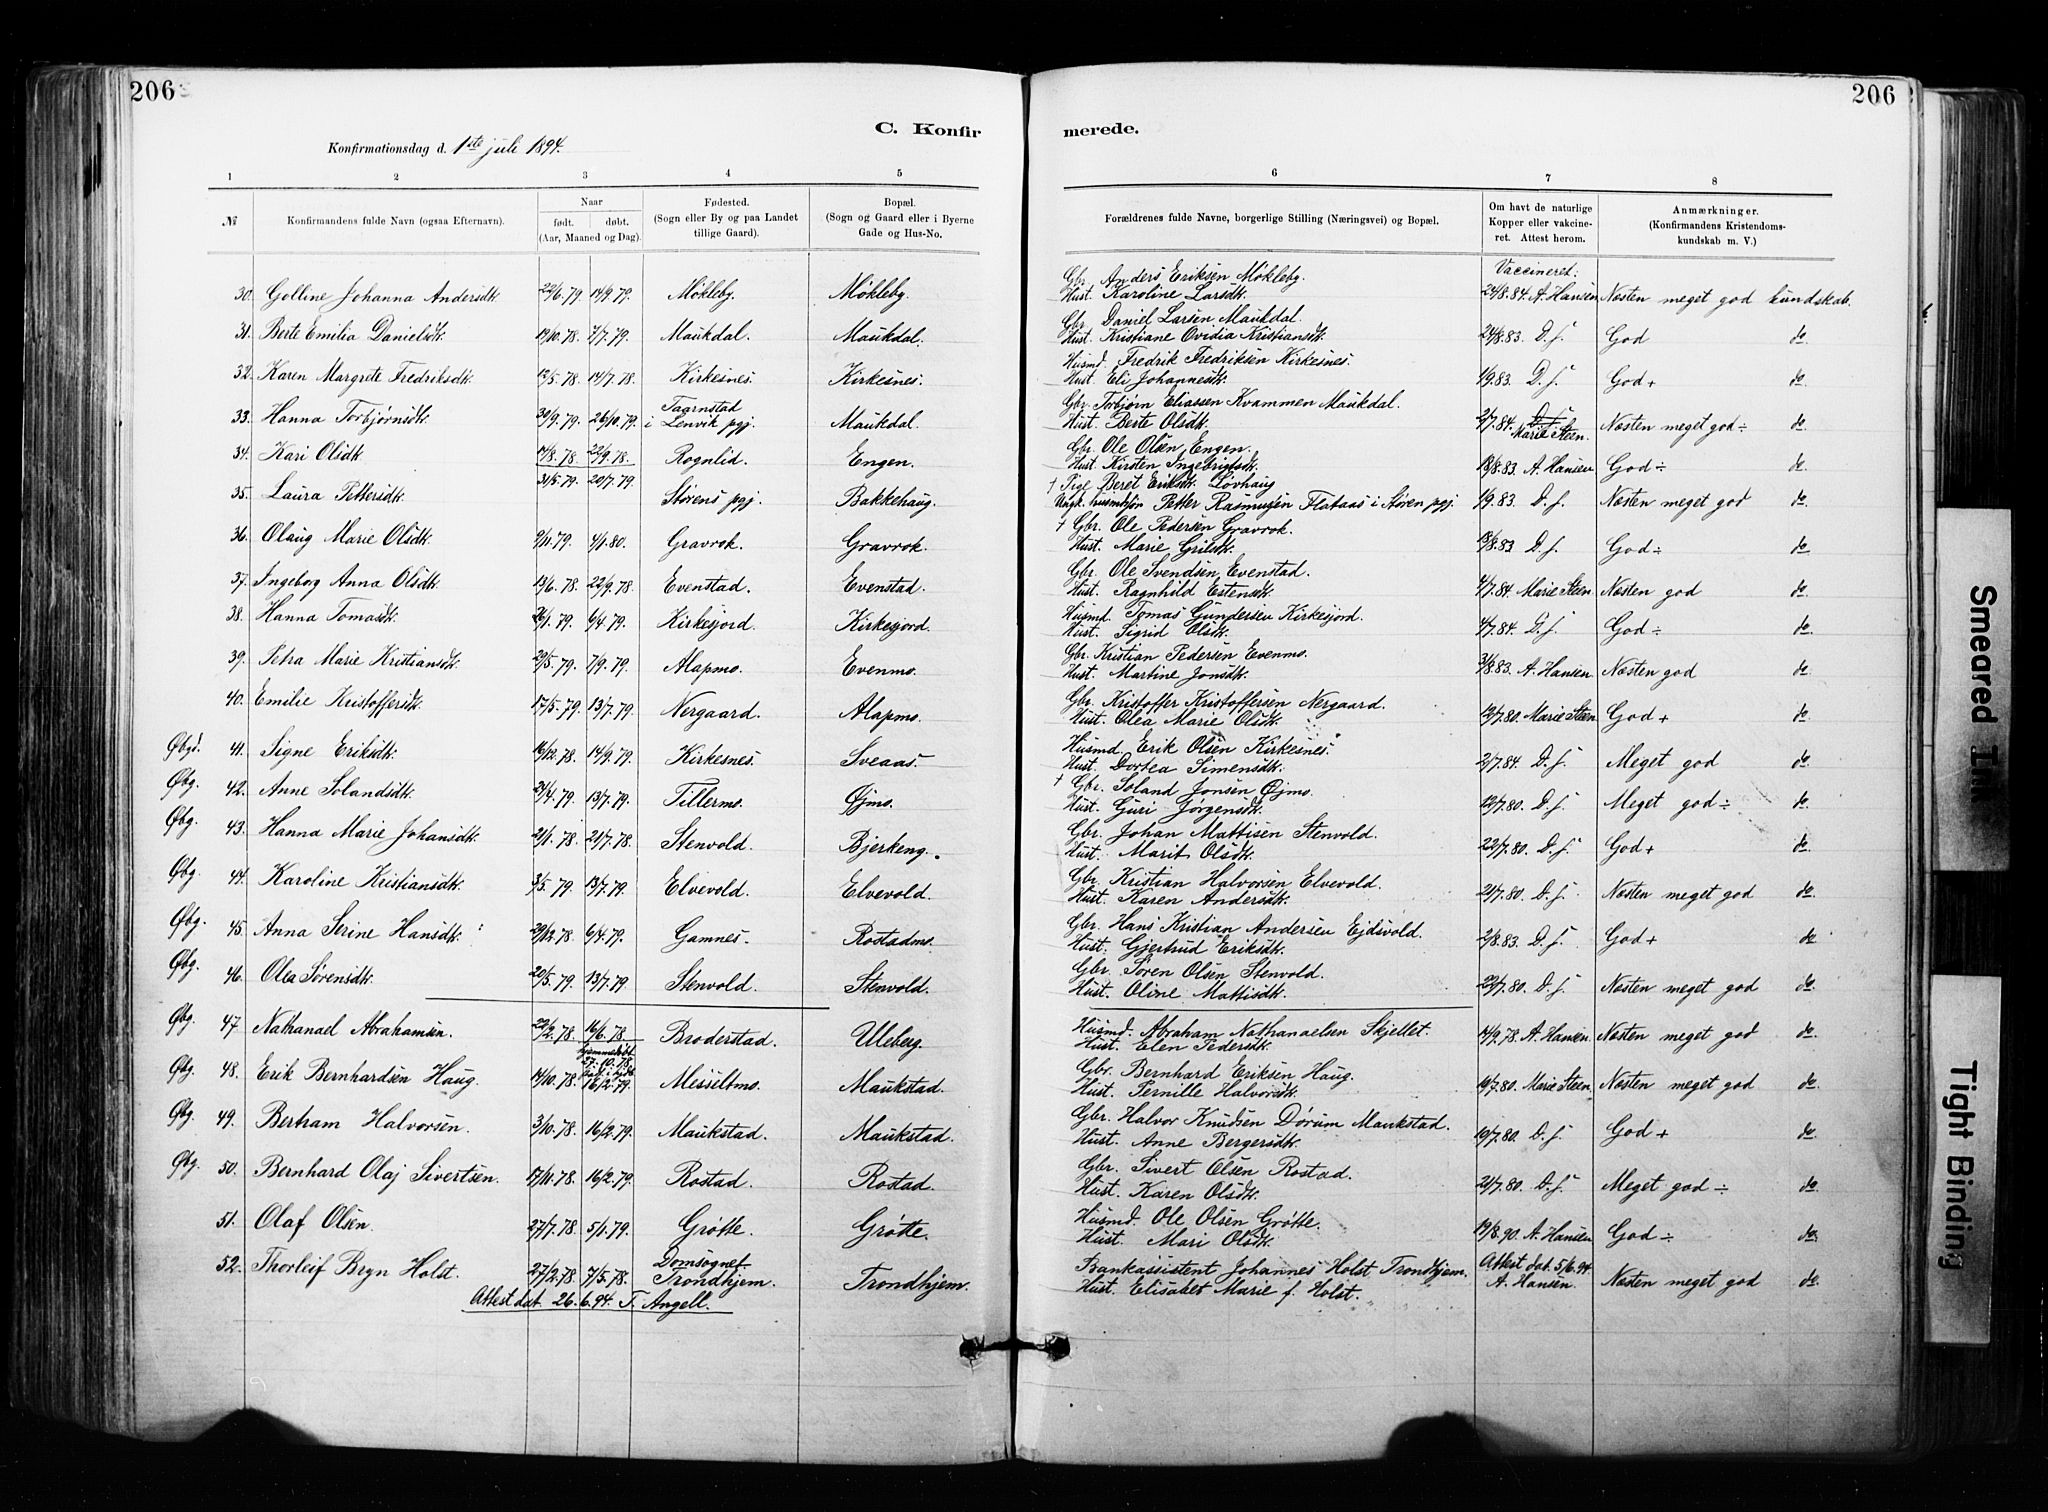 206
206
C. Konfir
merede.
Konfirmationsdag d. 1ste juli 1894.
1 2 3 4 5 6 7 8
№ Konfirmandens fulde Navn (ogsaa Efternavn). Naar født. døbt. (Aar, Maaned og Dag). Fødested. (Sogn eller By og paa Landet tillige Gaard). Bopæl. (Sogn og Gaard eller i Byerne Gade og Hus-No. Forældrenes fulde Navne, borgerlige Stilling (Næringsvei) og Bopæl. Om havt de naturlige Kopper eller vakcineret. Attest herom. Anmærkninger. (Konfirmandens Kristendomskundskab m. V.)
Vaccineret:
30. Golline Johanna Andersdtr. 22/6.79. 14/9.79. Møkleby. Møkleby. Gbr. Anders Eriksen Møkleby.
Hust. Karoline Larsdtr. 24/8.84. A. Hansen Næsten meget god kundskab.
31. Berte Emilia Danielsdtr. 19/10.78. 7/7.79. Maukdal. Maukdal. Gbr. Daniel Larsen Maukdal.
Hust. Kristiane Ovidia Kristiansdtr. 24/8.83. D. s. God do.
32. Karen Margrete Fredriksdtr. 12/5.78. 14/7.78. Kirkesnes. Kirkesnes. Husmd. Fredrik Fredriksen Kirkesnes.
Hust. Eli Johannesdtr. 1/9.83. D. s. God + do.
33. Hanna Torbjørnsdtr. 30/9.79. 26/10.79. Taarnstad i Lenvik pgj. Maukdal. Gbr. Torbjørn Eliassen Kvammen Maukdal.
Hust. Berte Olsdtr. 2/7.84. D. s. Marie Steen. Næsten meget god ÷ do.
34. Kari Olsdtr. 14/8.78. 22/9.78. Rognlid. Engen. Gbr. Ole Olsen Engen.
Hust. Kirsten Ingebrigtsdtr. 18/8.83. A. Hansen God ÷ do.
35. Laura Pettersdtr. 31/5.79. 20/7.79. Størens pgj. Bakkehaug. † Pige Beret Eriksdtr. Løvhaug
Ungk. husmdssøn Petter Rasmussen Flataas i Støren pgj. 1/9.83. D. s. Næsten meget god do.
36. Olaug Marie Olsdtr. 9/11.79. 4/1.80. Gravrok. Gravrok. † Gbr. Ole Pedersen Gravrok.
Hust. Marie Grilsdtr. 18/8.83 D. s. God ÷ do.
37. Ingeborg Anna Olsdtr. 13/6.78. 22/9.78. Evenstad. Evenstad. Gbr. Ole Svendsen Evenstad.
Hust. Ragnhild Estensdtr. 4/7.84. Marie Steen. Næsten god do.
38. Hanna Tomasdtr. 26/1.79. 6/4.79. Kirkesjord. Kirkesjord. Husmd. Tomas Gundersen Kirkesjord.
Hust. Sigrid Olsdtr. 4/7.84. D. s. God ÷ do.
39. Petra Marie Kristiansdtr. 29/5.79. 7/9.79. Alapmo. Evenmo. Gbr. Kristian Pedersen Evenmo.
Hust. Martine Jonsdtr. 31/8.83. A. Hansen Næsten god do.
40. Emilie Kristoffersdtr. 17/5.79. 13/7.79. Nergaard. Alapmo. Gbr. Kristoffer Kristoffersen Nergaard.
Hust. Olea Marie Olsdtr. 12/7.80. Marie Steen God + do.
Øbgd. 41. Signe Eriksdtr. 16/12.78. 14/9.79. Kirkesnes. Sveaas. Husmd. Erik Olsen Kirkesnes.
Hust. Dortea Simensdtr. 2/7.84. D. s. Meget god do.
Øbg. 42. Anne Solandsdtr. 24/4.79. 13/7.79. Tillermo. Øjmo. † Gbr. Soland Jonsen Øjmo.
Hust. Guri Jørgensdtr. 12/7.80. D. s. Meget god ÷ do.
Øbg. 43. Hanna Marie Johansdtr. 21/1.78. 21/7.78. Stenvold. Bjerkeng. Gbr. Johan Mattisen Stenvold.
Hust. Marit Olsdtr. 22/7.80. D. s. God + do.
Øbg. 44. Karoline Kristiansdtr. 3/5.79. 13/7.79. Elvevold. Elvevold. Gbr. Kristian Halvorsen Elvevold.
Hust. Karen Andersdtr. 21/7.80. D. s. Næsten meget god do.
Øbg. 45. Anna Serine Hansdtr. 29/12.78. 6/4.79. Gamnes. Rostadmo. Gbr. Hans Kristian Andersen Ejdsvold.
Hust. Gjertrud Eriksdtr. 2/8.83. D. s. God + do
Øbg. 46. Olea Sørensdtr. 20/5.79. 13/7.79 Stenvold. Stenvold. Gbr. Søren Olsen Stenvold.
Hust. Oline Mattisdtr. 22/7.80. D. s. Næsten meget god do.
Øbg. 47. Nathanael Abrahamsen. 22/2.78. 16/6.78. Broderstad. Uleberg. Husmd. Abraham Nathanaelsen Skjellet.
Hust. Elen Pedersdtr. 14/9.78. A. Hansen Næsten meget god do.
Øbg. 48. Erik Bernhardsen Haug. 14/10.78. hjemmedøbt 27.10.78. 16/2.79. Messeltmo. Maukstad. Gbr. Bernhard Eriksen Haug.
Hust. Pernille Halvorsdtr. 19/7.80. Marie Steen. Næsten meget god do.
Øbg. 49. Bertram Halvorsen. 3/10.78. 16/2.79. Maukstad. Maukstad. Gbr. Halvor Knudsen Dørum Maukstad.
Hust. Anne Bergersdtr. 19/7.80. D. s. God + do
Øbg. 50. Bernhard Olaj Sivertsen. 17/11.78. 16/2.79. Rostad. Rostad. Gbr. Sivert Olsen Rostad.
Hust. Karen Olsdtr. 21/7.80. D. s. Meget god ÷ do.
51. Olaf Olsen. 27/7.78. 5/1.79. Grøtte. Grøtte. Husmd. Ole Olsen Grøtte.
Hust. Mari Olsdtr. 19/8.90. A. Hansen God ÷ do.
52. Thorleif Bryn Holst. 27/2.78. 7/5.78. Domsognet Trondhjem. Trondhjem. Bankassistent Johannes Holst Trondhjem.
Hust. Elisabet Marie f. Holst. Attest dat. 5/6.94. A. Hansen. Næsten meget god do.
Attest dat. 26.6.94. T. Angell.
Smeared Ink
Tight Binding